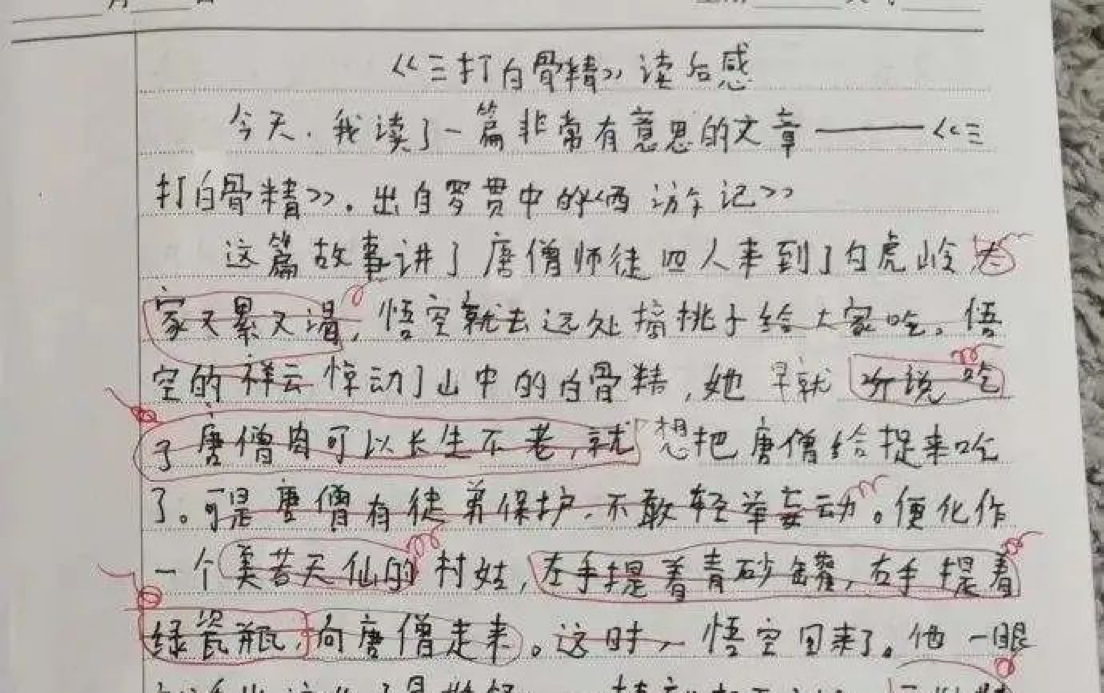 月 日
《三打白骨精》读后感
今天,我读了一篇非常有意思的文章——《三
打白骨精》。出自罗贯中的《西游记》
这篇故事讲了唐僧师徒四人来到了白虎岭大
家又累又渴,悟空就去远处摘桃子给大家吃。悟
空的祥云惊动了山中的白骨精,她早就听说吃
了唐僧肉可以长生不老,就想把唐僧给捉来吃
了。可是唐僧有徒弟保护,不敢轻举妄动。便化作
一个美若天仙的村姑,左手提着青砂罐,右手提着
绿瓷瓶,向唐僧走来。这时,悟空回来了。他一眼